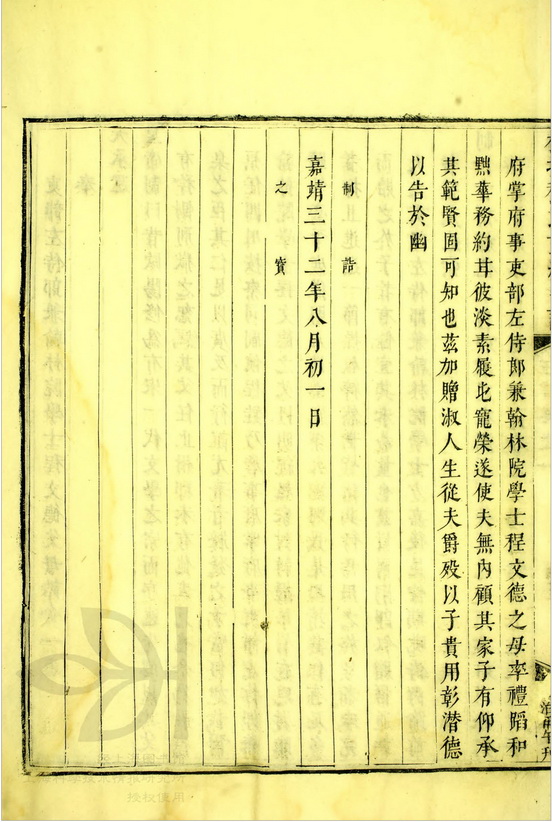 府掌府事吏部左侍郎兼翰林院學士程文德之母率禮蹈和
黜華務約甘彼淡素履此寵榮遂使夫無內顧其家子有仰承
其範賢固可知也茲加贈淑人生從夫爵歿以子貴用彰潛德
以告於幽
制誥
嘉靖三十二年八月初一日
之寶
授權使用